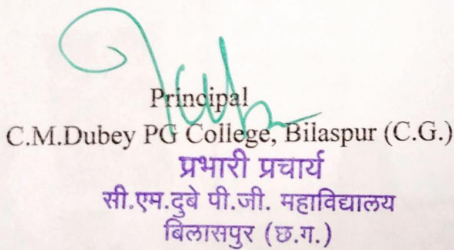 Principal
C.M.Dubey PG College, Bilaspur (C.G.)
प्रभारी प्रचार्य
सी.एम.दुबे पी.जी. महाविद्यालय
बिलासपुर (छ.ग.)